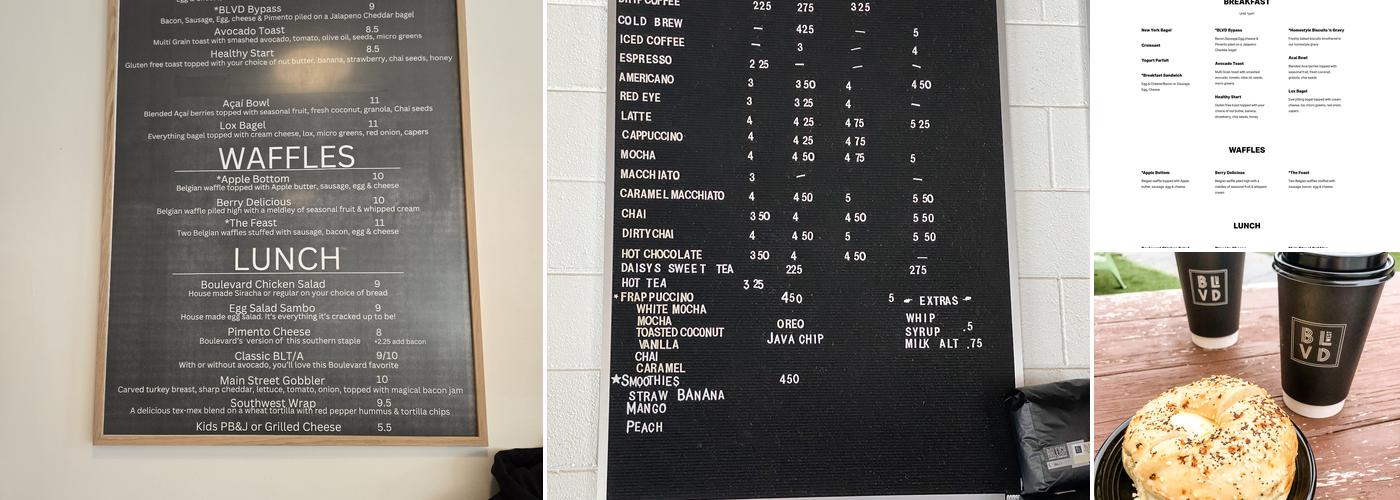 *BLVD Bypass 9
Bacon, Sausage, Egg, cheese & Pimento piled on a Jalapeno Cheddar bagel
Avocado Toast 8.5
Multi Grain toast with smashed avocado, tomato, olive oil, seeds, micro greens
Healthy Start 8.5
Gluten free toast topped with your choice of nut butter, banana, strawberry, chai seeds, honey
Açaí Bowl 11
Blended Açaí berries topped with seasonal fruit, fresh coconut, granola, Chai seeds
Lox Bagel 11
Everything bagel topped with cream cheese, lox, micro greens, red onion, capers
WAFFLES
*Apple Bottom 10
Belgian waffle topped with Apple butter, sausage, egg & cheese
Berry Delicious 10
Belgian waffle piled high with a meldley of seasonal fruit & whipped cream
*The Feast 11
Two Belgian waffles stuffed with sausage, bacon, egg & cheese
LUNCH
Boulevard Chicken Salad 9
House made Siracha or regular on your choice of bread
Egg Salad Sambo 9
House made egg salad. It's everything it's cracked up to be!
Pimento Cheese 8
Boulevard's version of this southern staple +2.25 add bacon
Classic BLT/A 9/10
With or without avocado, you'll love this Boulevard favorite
Main Street Gobbler 10
Carved turkey breast, sharp cheddar, lettuce, tomato, onion, topped with magical bacon jam
Southwest Wrap 9.5
A delicious tex-mex blend on a wheat tortilla with red pepper hummus & tortilla chips
Kids PB&J or Grilled Cheese 5.5
DRIP COFFEE 225 275 325
COLD BREW — 425 — 5
ICED COFFEE — 3 — 4
ESPRESSO 2 25 — — —
AMERICANO 3 3 50 4 4 50
RED EYE 3 3 25 4 —
LATTE 4 4 25 4 75 5 25
CAPPUCCINO 4 4 25 4
MOCHA 4 4 50 4 75 5
MACCHIATO 3 — —
CARAMEL MACCHIATO 4 4 50 5 5 50
CHAI 3 50 4 4 50 5 50
DIRTY CHAI 4 4 50 5 5 50
HOT CHOCOLATE 3 50 4 4 50 —
DAISYS SWEET TEA 225 275
HOT TEA 3 25
*FRAPPUCCINO 450 5
WHITE MOCHA
MOCHA OREO
TOASTED COCONUT JAVA CHIP
VANILLA
CHAI
CARAMEL
EXTRAS
WHIP
SYRUP .5
MILK ALT .75
★SMOOTHIES 450
STRAW BANANA
MANGO
PEACH
BREAKFAST
New York Bagel
Croissant
Yogurt Parfait
*Breakfast Sandwich
Egg & Cheese/Bacon or Sausage,
Egg, Cheese
*BLVD Bypass
Bacon,Sausage,Egg,cheese &
Pimento piled on a Jalapeno
Cheddar bagel
Avocado Toast
Multi Grain toast with smashed
avocado, tomato, olive oil, seeds,
micro greens
Healthy Start
Gluten free toast topped with your
choice of nut butter, banana,
strawberry, chia seeds, honey
*Homestyle Biscuits 'n Gravy
Freshly baked biscuits smothered in
our homestyle gravy
Acai Bowl
Blended Acai berries topped with
seasonal fruit, fresh coconut,
granola, chia seeds
Lox Bagel
Everything bagel topped with cream
cheese, lox, micro greens, red onion,
capers
WAFFLES
*Apple Bottom
Belgian waffle topped with Apple
butter, sausage, egg & cheese
Berry Delicious
Belgian waffle piled high with a
medley of seasonal fruit & whipped
cream
*The Feast
Two Belgian waffles stuffed with
sausage, bacon, egg & cheese
LUNCH
BLVD
BLVD